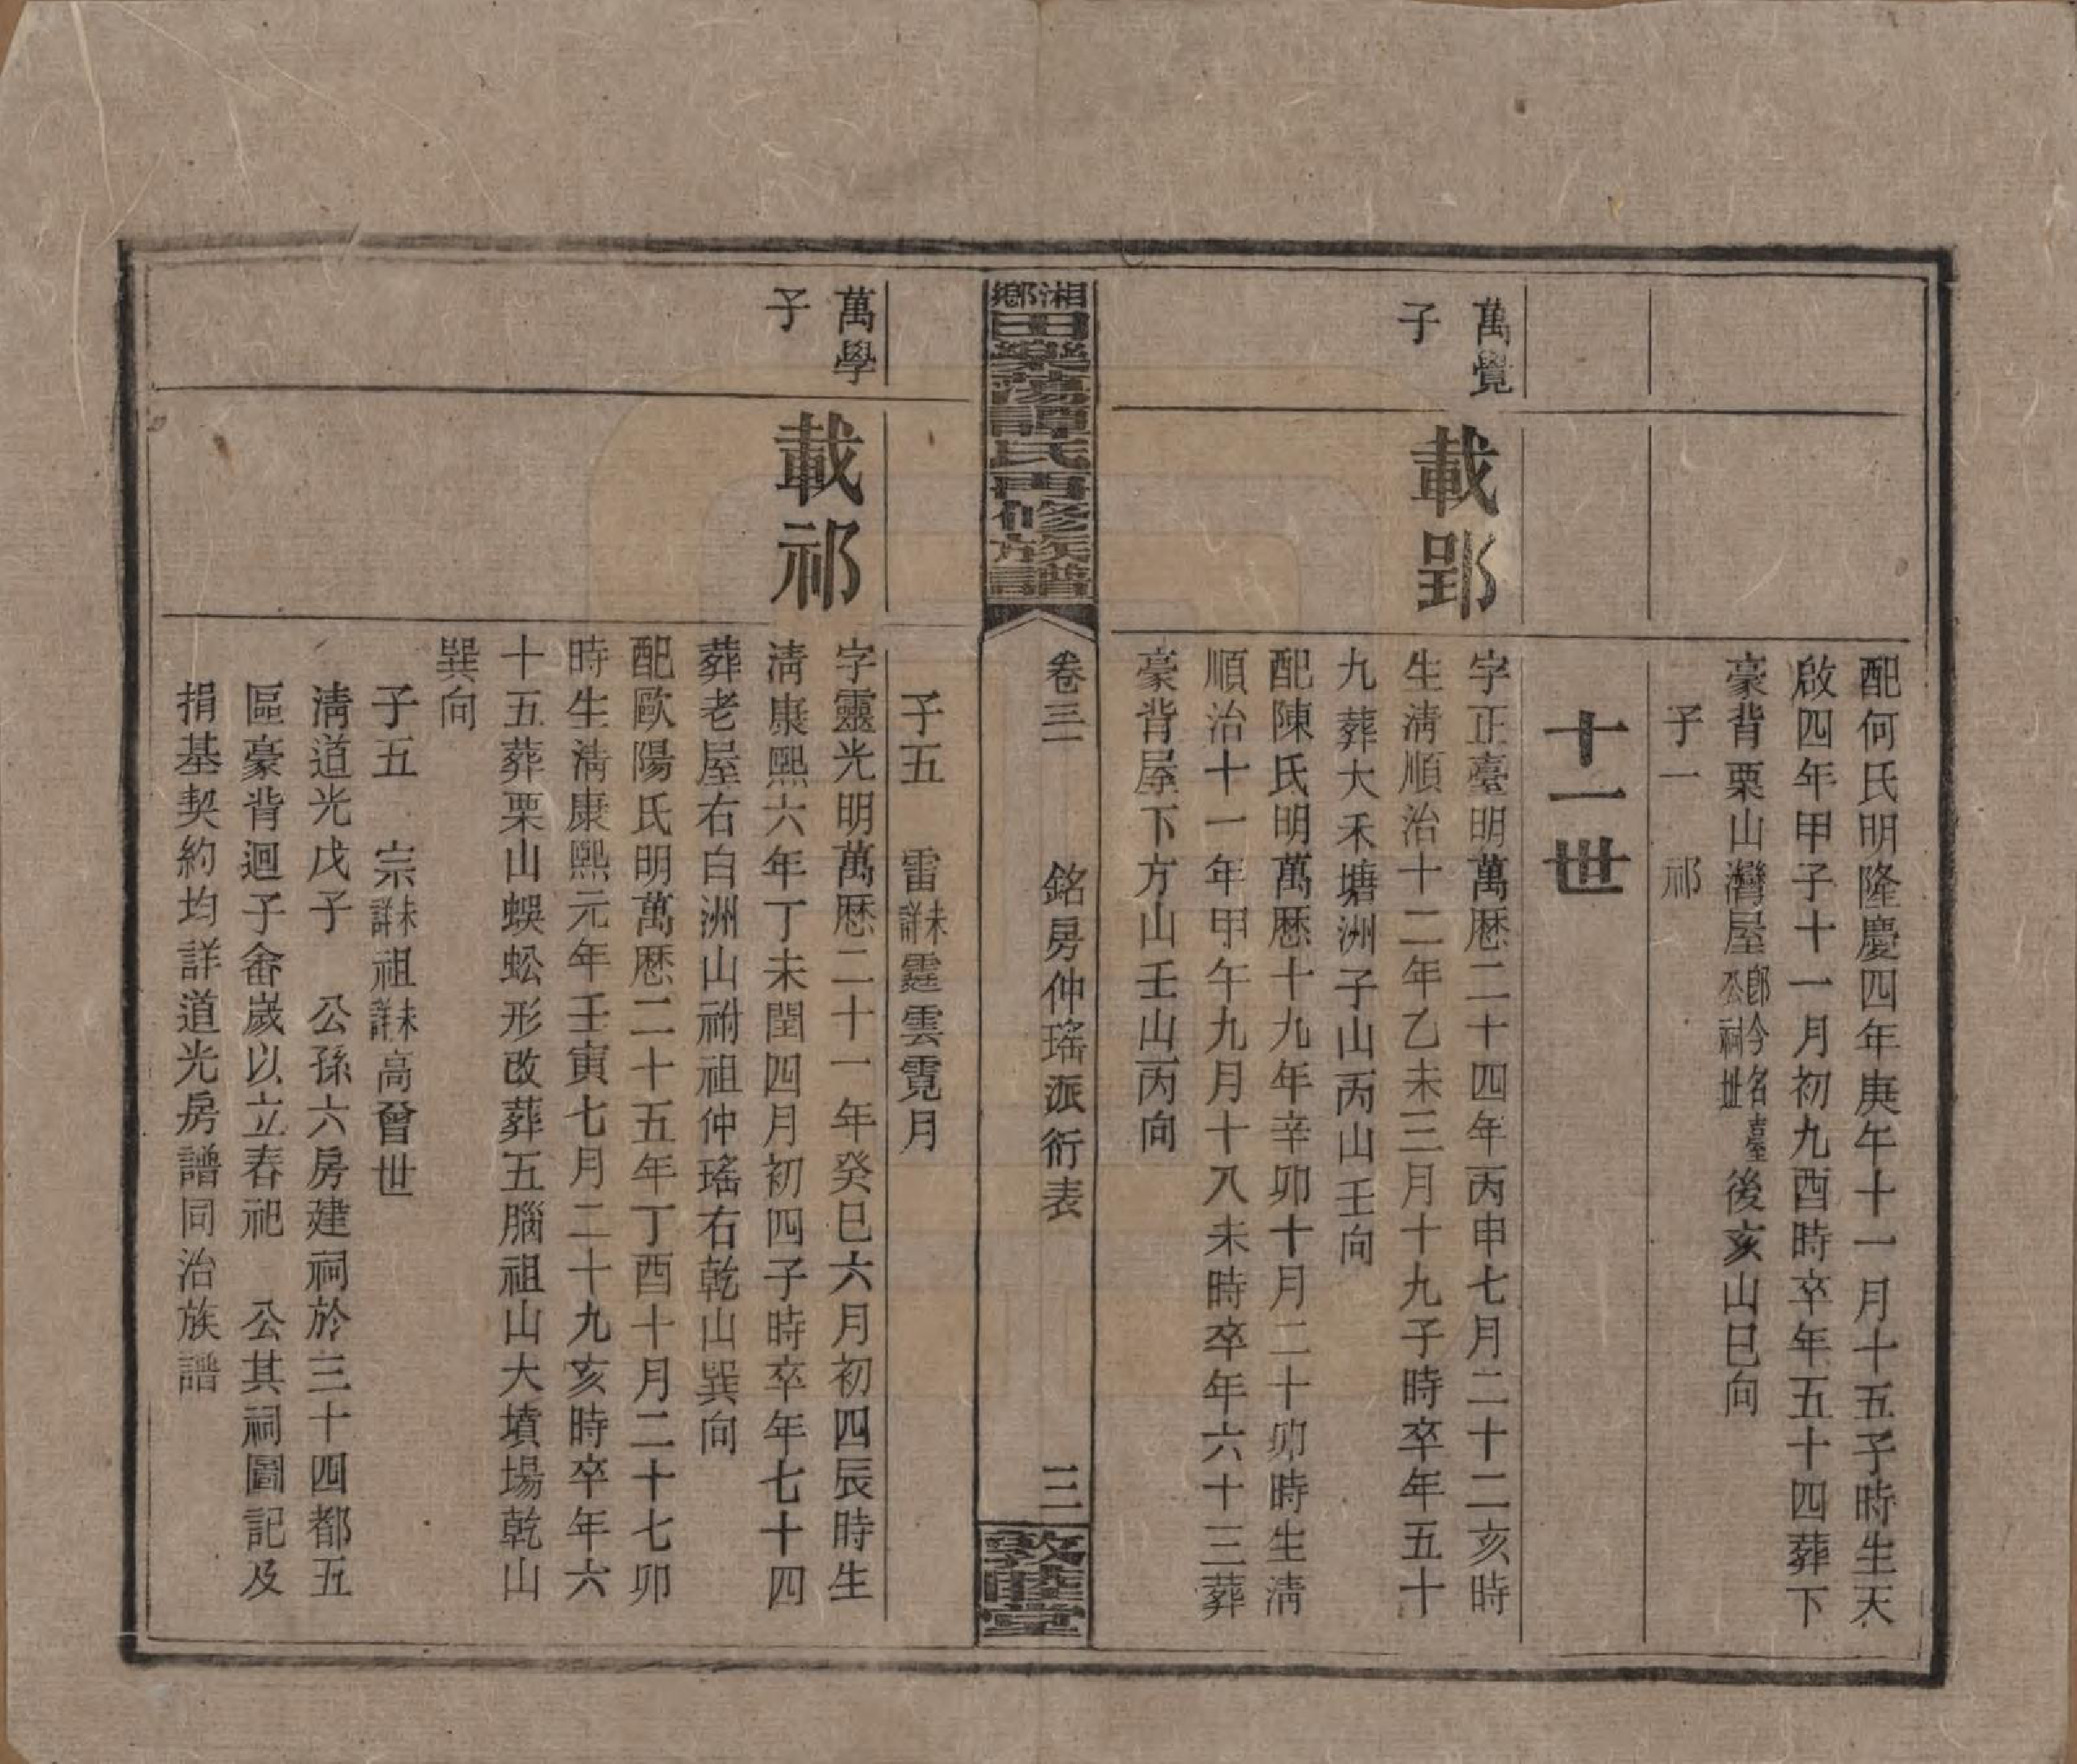 配何氏明隆慶四年庚午十一月十五子時生天
啟四年甲子十一月初九酉時卒年五十四葬下
豪背栗山灣屋卽今名吉臺公祠址後亥山巳向
子一 祁
十一世
萬覺子
載郢
字正臺明萬厯二十四年丙申七月二十二亥時
生淸順治十二年乙未三月十九子時卒年五十
九葬大禾塘洲子山丙山壬向
配陳氏明萬厯十九年辛卯十月二十卯時生淸
順治十一年甲午九月十八未時卒年六十三葬
豪背屋下方山壬山丙向
湘鄉田樂蕩譚氏再修族譜
卷三 銘房仲瑤派衍表 三
敦睦堂
子五 雷未詳霆雲霓月
萬學子
載祁
字靈光明萬厯二十一年癸巳六月初四辰時生
淸康熙六年丁未閏四月初四子時卒年七十四
葬老屋右白洲山祔祖仲瑤右乾山巽向
配歐陽氏明萬厯二十五年丁酉十月二十七卯
時生淸康熙元年壬寅七月二十九亥時卒年六
十五葬栗山蜈蚣形改葬五腦祖山大墳場乾山
巽向
子五 宗未詳祖未詳高曾世
淸道光戊子 公孫六房建祠於三十四都五
區豪背迴子畬歲以立春祀 公其祠圖記及
捐基契約均詳道光房譜同治族譜